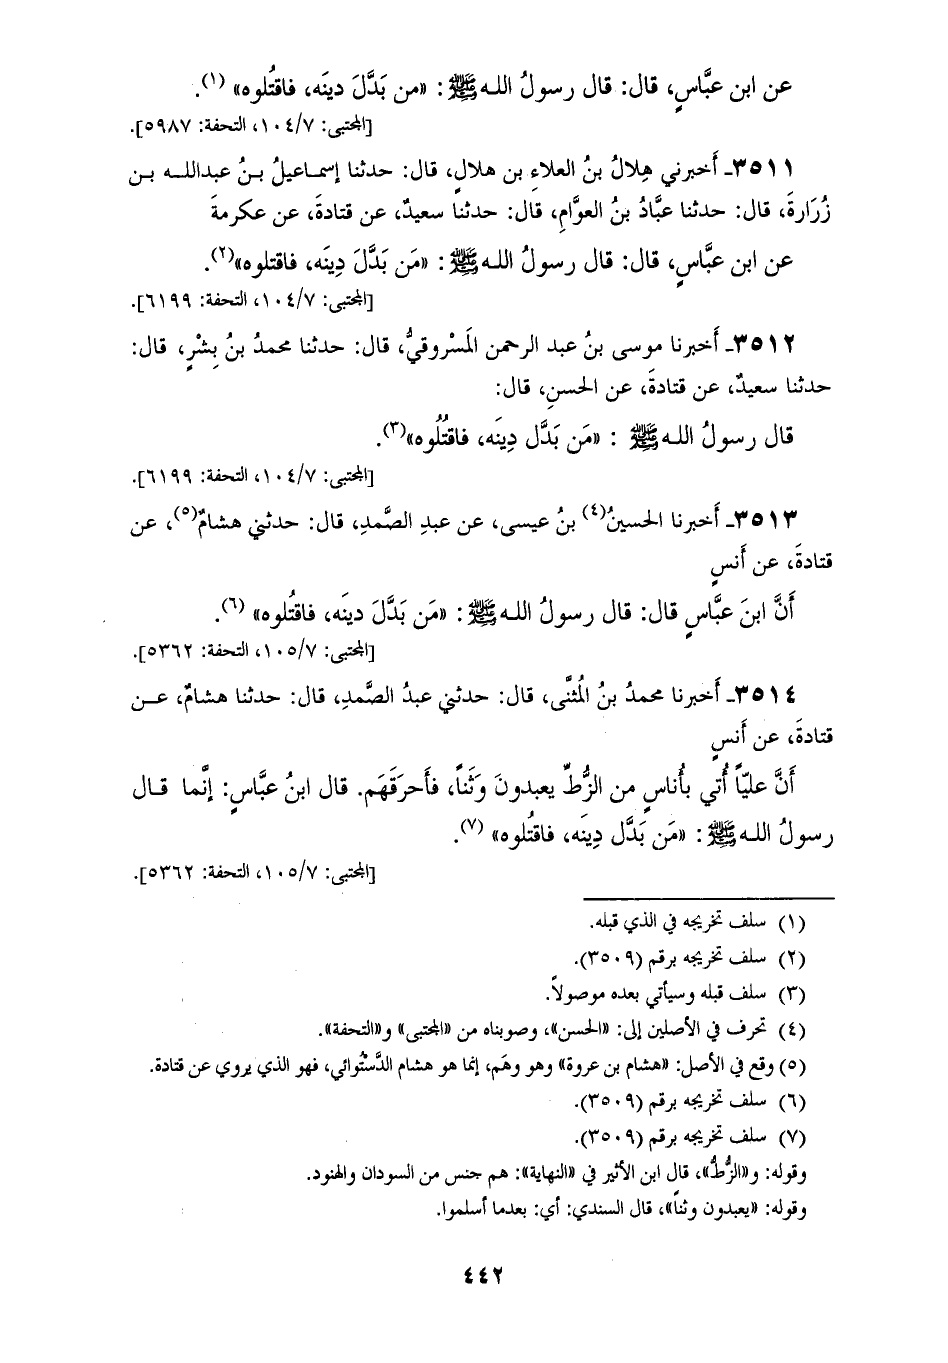 عن ابن عبَّاسٍ، قال: قال رسولُ اللـه ﷺ : «من بَدَّلَ دينَه، فاقتُلوه» (١).
[المجتبى: ١٠٤/٧، التحفة: ٥٩٨٧].
٣٥١١ـ أَخبرني هِلالُ بنُ العلاءِ بن هلالٍ، قال: حدثنا إسماعيلُ بـنُ عبداللـه بـن
زُرَارةَ، قال: حدثنا عبَّادُ بنُ العوَّامِ، قال: حدثنا سعيدٌ، عن قتادةَ، عن عكرمةَ
عن ابن عبَّاسٍ، قال: قال رسولُ اللـه ﷺ : «مَن بَدَّلَ دِينَه، فاقتلوه»(٢).
[المجتبى: ١٠٤/٧، التحفة: ٦١٩٩].
٣٥١٢ـ أَخبرنا موسى بنُ عبد الرحمن المَسْروقيُّ، قال: حدثنا محمدُ بنُ بِشْرٍ، قال:
حدثنا سعيدٌ، عن قتادةَ، عن الحسنِ، قال:
قال رسولُ اللـه ﷺ : «مَن بَدَّل دِينَه، فاقتُلُوه»(٣).
[المجتبى: ١٠٤/٧، التحفة: ٦١٩٩].
٣٥١٣ـ أَخبرنا الحسينُ(٤) بنُ عيسى، عن عبدِ الصَّمدِ، قال: حدثني هشامٌ(٥)، عن
قتادةَ، عن أَنسٍ
أَنَّ ابنَ عبَّاسٍ قال: قال رسولُ اللـه ﷺ : «مَن بَدَّلَ دينَه، فاقتُلوه» (٦).
[المجتبى: ١٠٥/٧، التحفة: ٥٣٦٢].
٣٥١٤ـ أَخبرنا محمدُ بنُ المُثنَّى، قال: حدثني عبدُ الصَّمدِ، قال: حدثنا هشامٌ، عـن
قتادةَ، عن أَنسٍ
أَنَّ عليّاً أُتي بأُناسٍ من الزُّطِّ يعبدونَ وَثَناً، فأَحرَقَهَم. قال ابنُ عبَّاسٍ: إنَّما قـال
رسولُ اللـه ﷺ : «مَن بَدَّل دِينَه، فاقتُلوه» (٧).
[المجتبى: ١٠٥/٧، التحفة: ٥٣٦٢].
(١) سلف تخريجه في الذي قبله.
(٢) سلف تخريجه برقم (٣٥٠٩).
(٣) سلف قبله وسيأتي بعده موصولاً.
(٤) تحرف في الأصلين إلى: «الحسن»، وصوبناه من «المجتبى» و«التحفة».
(٥) وقع في الأصل: «هشام بن عروة» وهو وهَم، إنما هو هشام الدَّستُوائي، فهو الذي يروي عن قتادة.
(٦) سلف تخريجه برقم (٣٥٠٩).
(٧) سلف تخريجه برقم (٣٥٠٩).
وقوله: و«الزُّطُّ»، قال ابن الأثير في «النهاية»: هم جنس من السودان والهنود.
وقوله: «يعبدون وثناً»، قال السندي: أي: بعدما أسلموا.
٤٤٢